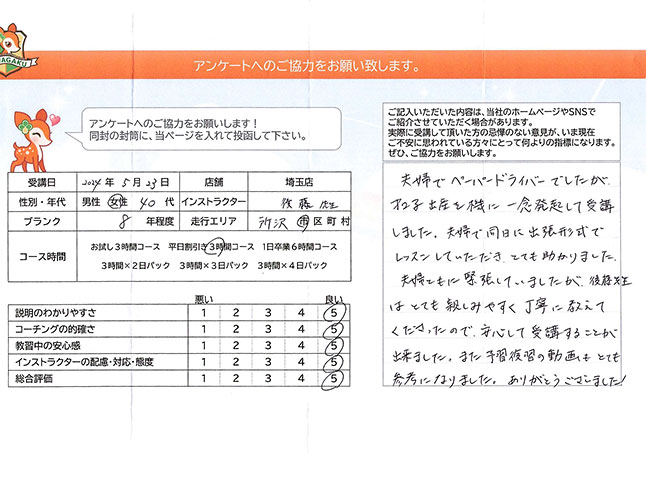 アンケートへのご協力をお願い致します。
アンケートへのご協力をお願いします！
同封の封筒に、当ページを入れて投函して下さい。
ご記入いただいた内容は、当社のホームページやSNSで
ご紹介させていただく場合があります。
実際に受講して頂いた方の忌憚のない意見が、いま現在
ご不安に思われている方々にとって何よりの指標になります。
ぜひ、ご協力をお願いします。
受講日 2024年 5月 23日 店舗 埼玉店
性別・年代 男性 女性 40 代 インストラクター 後藤 先生
ブランク 8 年程度 走行エリア 所沢 市区町村
コース時間 お試し3時間コース 平日割引き3時間コース 1日卒業6時間コース
3時間×2日パック 3時間×3日パック 3時間×4日パック
悪い 良い
説明のわかりやすさ 1 2 3 4 5
コーチングの的確さ 1 2 3 4 5
教習中の安心感 1 2 3 4 5
インストラクターの配慮・対応・態度 1 2 3 4 5
総合評価 1 2 3 4 5
夫婦でペーパードライバーでしたが、
出産を機に一念発起して受講
しました。夫婦で同日に出張形式で
レッスンしていただき、とても助かりました。
夫婦ともに緊張していましたが、後藤先生
はとても親しみやすく丁寧に教えて
くださったので、安心して受講することが
出来ました。また予習復習の動画もとても
参考になりました。ありがとうございました！